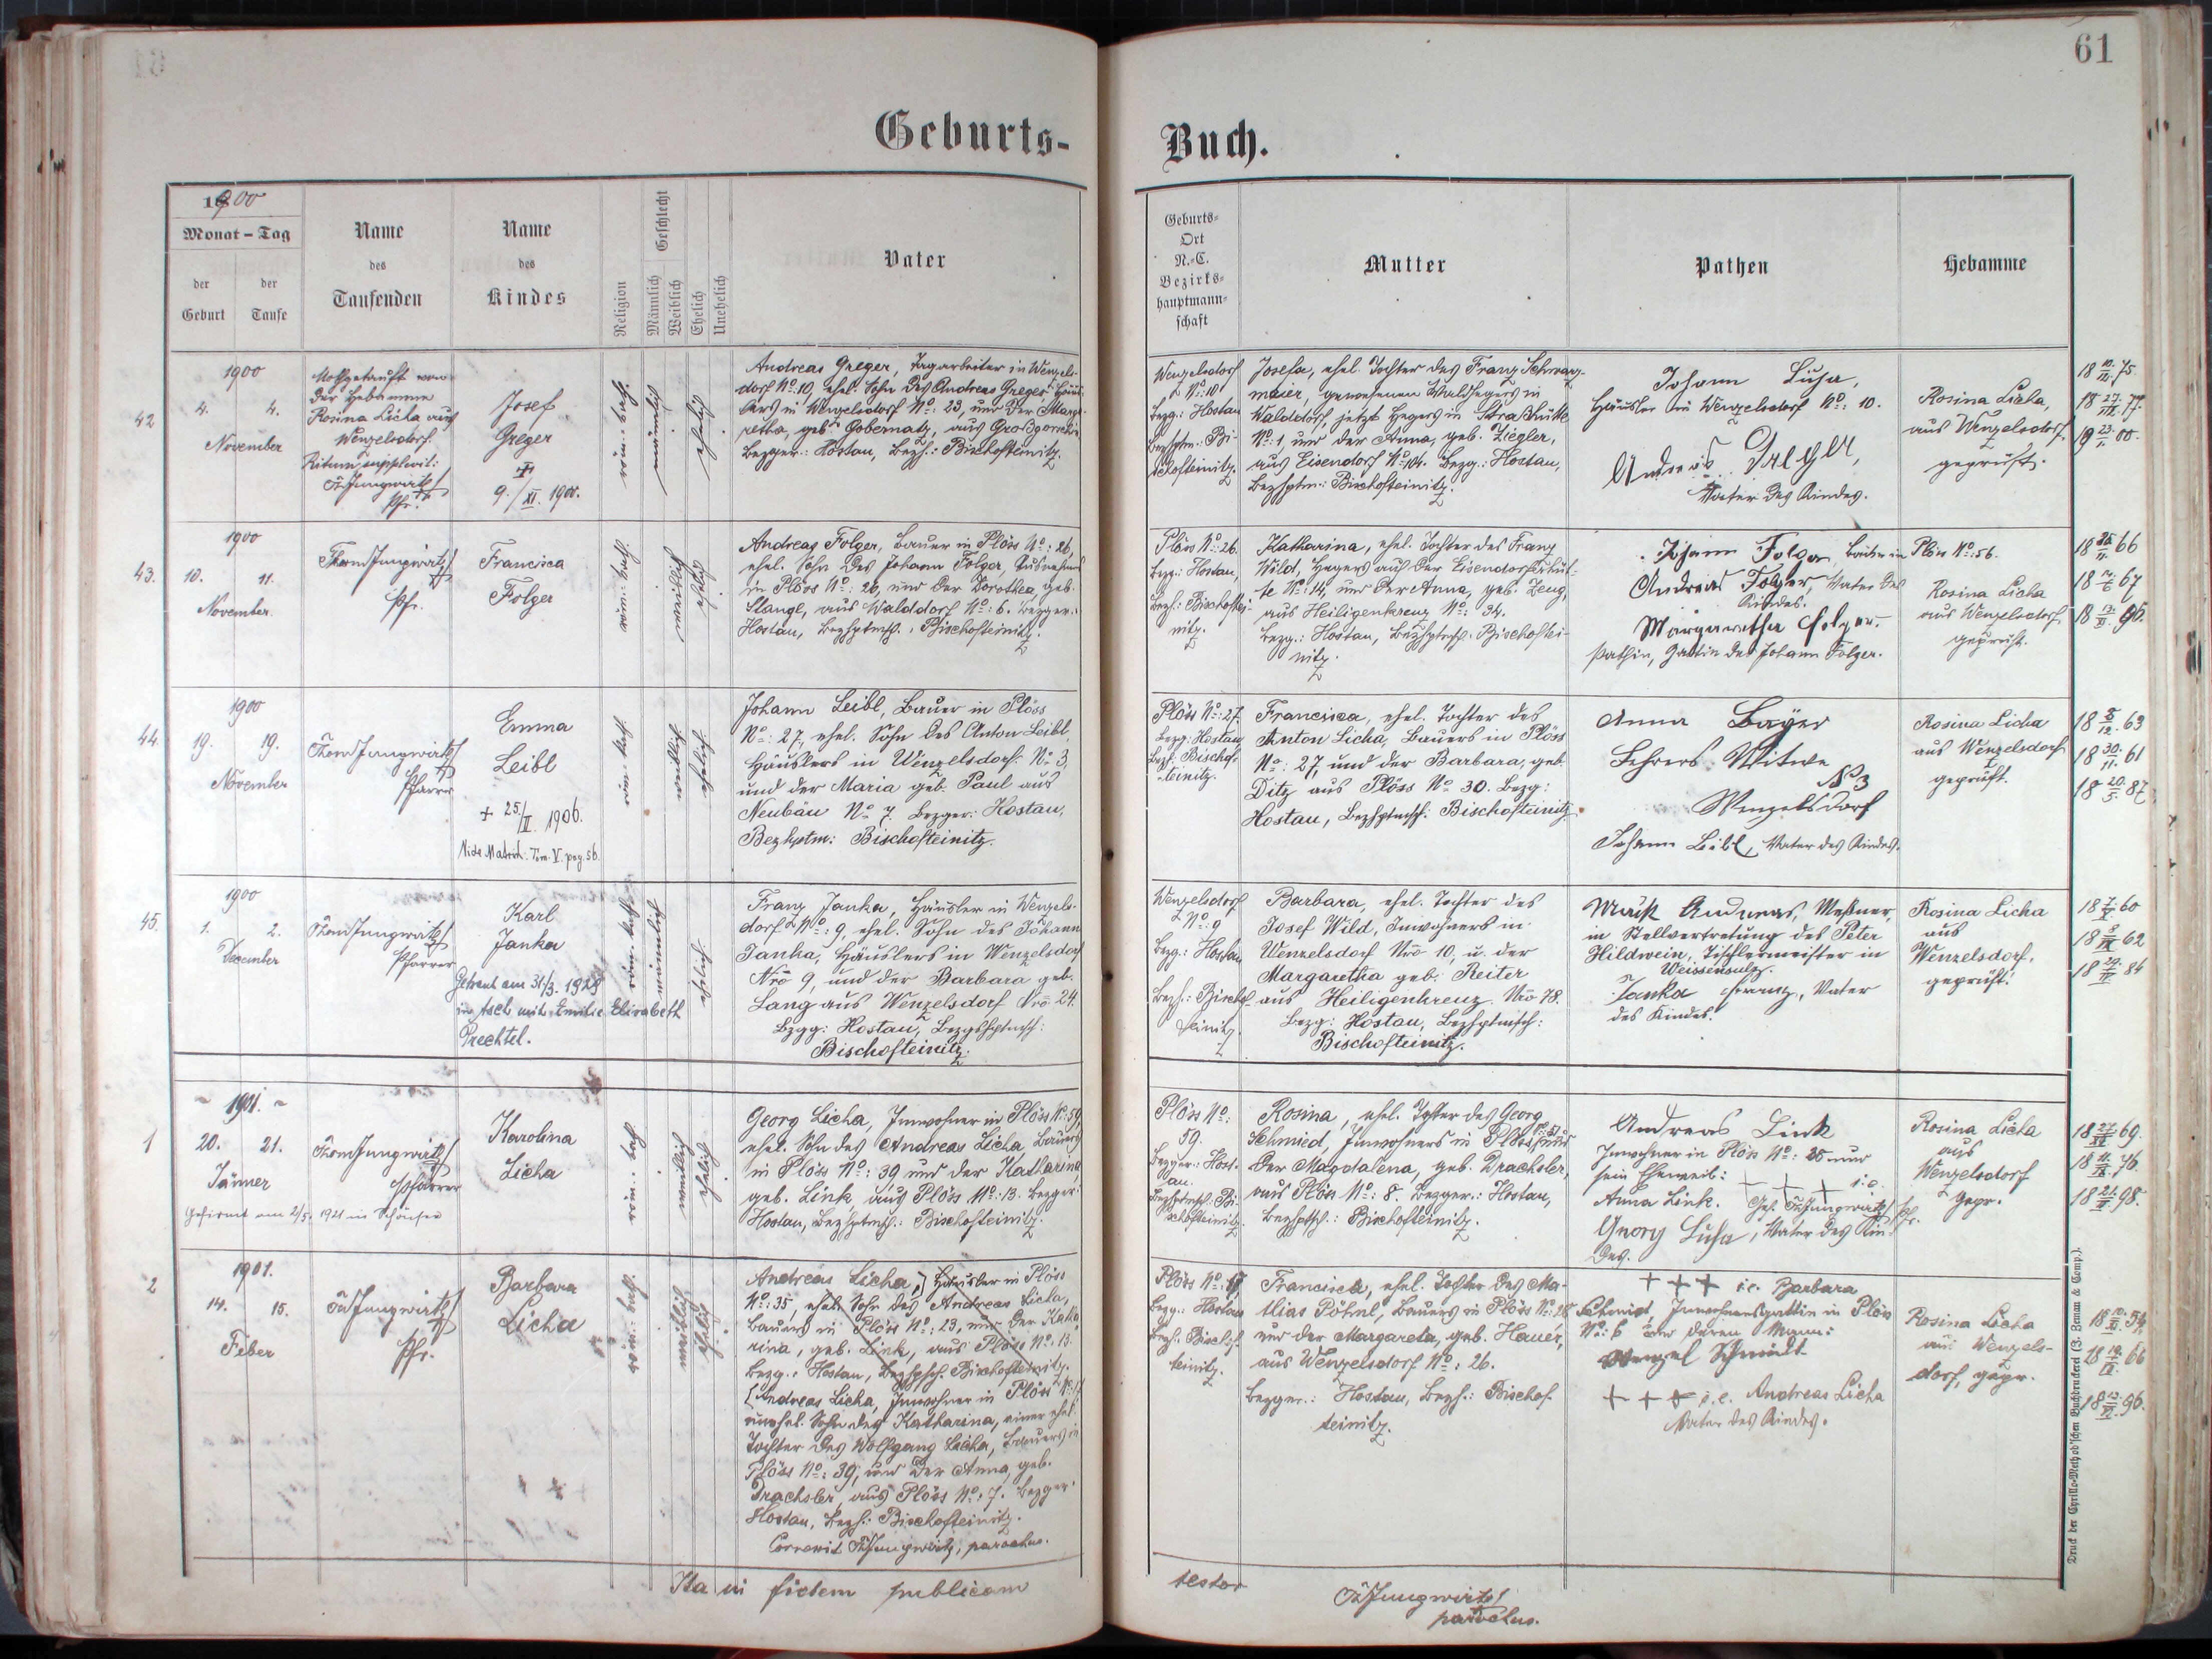 61
Geburts-
Buch.
1900
Monat – Tag
der
Geburt
der
Taufe
Name
des
Taufenden
Name
des
Kindes
Religion
Geschlecht
Männlich
Weiblich
Ehelich
Unehelich
Vater
Geburts-
Ort
N.-C.
Bezirks-
hauptmann-
schaft
Mutter
Pathen
Hebamme
42
1900
4. 4.
November
der Hebamme
Rosina Licha aus
Wenzelsdorf.
Jungwirth
Pfr.
Josef
Greger
9./XI. 1900.
röm. kath.
männlich
ehelich
Andreas Greger, Tagarbeiter in Wenzels-
dorf No: 10, ehel. Sohn des Andreas Greger, Häus-
lers in Wenzelsdorf No: 23, und der Marga-
retha, geb.
Bezger.: Hostau, Bezh.: Bischofteinitz.
Wenzelsdorf
No: 10
Bezg.: Hostau
Bezhptm.: Bi-
schofteinitz.
Josefa, ehel. Tochter des Franz Schwarz-
maier, gewesenen Waldhegers in
Walddorf, jetzt Hegers in Straßhütte
No: 1, und der Anna, geb. Ziegler,
aus Eisendorf No: 104. Bezg.: Hostau,
Bezhptm.: Bischofteinitz.
Johann Licha,
Häusler in Wenzelsdorf No: 10.
Andreas Greger,
Vater des Kindes.
Rosina Licha,
aus Wenzelsdorf,
geprüft.
43.
1900
10. 11.
November.
Jungwirth
Pfr.
Francisca
Folger
röm. kath.
weiblich
ehelich
Andreas Folger, Bauer in Plöss No: 26,
ehel. Sohn des Johann Folger,
in Plöss No: 26, und der Dorothea geb.
Stangl, aus Walddorf No: 6. Bezger.:
Hostau, Bezhptmsch.: Bischofteinitz.
Plöss No: 26.
Bezg.: Hostau,
Bezh.: Bischoftei-
nitz.
Katharina, ehel. Tochter des Franz
Wild, Hegers auf der
No: 14, und der Anna, geb. Zeug,
aus Heiligenkreuz No: 34.
Bezg.: Hostau, Bezhptmsch. Bischoftei-
nitz.
Johann Folger, Bauer in Plöss No: 56.
Andreas Folger, Vater des
Kindes.
Margaretha Folger.
Pathin, Gattin des Johann Folger.
Rosina Licha
aus Wenzelsdorf
geprüft.
44.
1900
19. 19.
November
Jungwirth
Pfarrer
Emma
Leibl
+ 25/II. 1906.
Vide Matrik: Tom. V. pag. 56.
röm. kath.
weiblich
ehelich
Johann Leibl, Bauer in Plöss
No: 27, ehel. Sohn des Anton Leibl,
Häuslers in Wenzelsdorf: No 3,
und der Maria geb. Paul aus
Neubäu No 7. Bezger: Hostau,
Bezhptm: Bischofteinitz.
Plöss No: 27.
Bezg: Hostau
Bezh. Bischof-
teinitz.
Francisca, ehel. Tochter des
Anton Licha, Bauers in Plöss
No: 27, und der Barbara, geb.
Ditz aus Plöss No 30. Bezg:
Hostau, Bezhptmsch: Bischofteinitz.
Anna Bayer
Lehrers Witwe
No 3
Wenzelsdorf
Johann Leibl, Vater des Kindes.
Rosina Licha
aus Wenzelsdorf
geprüft.
45.
1900
1. 2.
December
Jungwirth
Pfarrer
Karl
Janka
Getraut am 31/3. 1928
in Asch mit Emilie Elisabeth
Prechtel.
röm. kath.
männlich
ehelich
Franz Janka, Häusler in Wenzels-
dorf No: 9, ehel. Sohn des Johann
Janka, Häuslers in Wenzelsdorf
Nro 9, und der Barbara geb.
Lang aus Wenzelsdorf Nro 24.
Bzgg: Hostau, Bezgshptmsch:
Bischofteinitz.
Wenzelsdorf
No: 9
Bezg: Hostau
Bezh.: Bischof-
teinitz.
Barbara, ehel. Tochter des
Josef Wild, Inwohners in
Wenzelsdorf Nro 10, u. der
Margaretha geb: Reiter
aus Heiligenkreuz Nro 78.
Bezg: Hostau, Bezhptmsch:
Bischofteinitz.
Andreas, Meßner,
in Stellvertretung des Peter
Hildwein, Tischlermeister in
Weissensulz.
Janka Franz, Vater
des Kindes.
Rosina Licha
aus
Wenzelsdorf,
geprüft.
1
1901.
20. 21.
Jänner
Gefirmt am 2/5. 1921 in
Jungwirth
Pfarrer
Karolina
Licha
röm. kath.
weiblich
ehelich
Georg Licha, Inwohner in Plöss No: 59,
ehel. Sohn des Andreas Licha, Bauers
in Plöss No: 39, und der Katharina
geb. Link, aus Plöss No: 13. Bezger:
Hostau, Bezhptmsch.: Bischofteinitz.
Plöss No:
59.
Bezger.: Host-
au.
Bezhptmsch. Bi-
schofteinitz.
Rosina, ehel. Tochter des Georg
Schmied, Inwohners in Plöss No: 51, und
der Magdalena, geb. Drachsler,
aus Plöss No: 8. Bezger.: Hostau,
Bezhptsch.: Bischofteinitz.
Andreas Link
Inwohner in Plöss No: 25 und
sein Eheweib:
+ + + i. e.
Anna Link. Jungwirth Pfr.
Georg Licha, Vater des Kin-
des.
Rosina Licha
aus
Wenzelsdorf
gepr.
2
1901.
14. 15.
Feber
Jungwirth
Pfr.
Barbara
Licha
röm. kath.
weiblich
ehelich
Andreas Licha, Häusler in Plöss
No: 35, ehel. Sohn des Andreas Licha,
Bauers in Plöss No: 23, und der Katha-
rina, geb. Link, aus Plöss No: 13.
Bezg.: Hostau, Bezhptsch. Bischofteinitz.
[Andreas Licha, Inwohner in Plöss No: 17
unehel. Sohn der Katharina, einer ehel.
Tochter des Wolfgang Licha, Bauers in
Plöss No: 39, und der Anna, geb.
Drachsler, aus Plöss No: 7. Bezger.
Hostau, Bezh.: Bischofteinitz.
Correxit Jungwirth, parochus.
Plöss No: 17
Bezg.: Hostau
Bezh. Bischof-
teinitz.
Francisca, ehel. Tochter des Ma-
thias Pöhnl, Bauers in Plöss No: 28
und der Margareta, geb. Hauer,
aus Wenzelsdorf No: 26.
Bezger.: Hostau, Bezh.: Bischof-
teinitz.
+ + + i.e. Barbara
Schmidt, Inwohnersgattin in Plöss
No: 6 und deren Mann:
Wenzel Schmidt
+ + + i.e. Andreas Licha
Vater des Kindes.
Rosina Licha
aus Wenzels-
dorf, gepr.
Ita in fidem publicam
testor
Jungwirth
parochus.
Druck der Cyrillo-Method'schen Buchdruckerei (J. Zeman & Comp.).